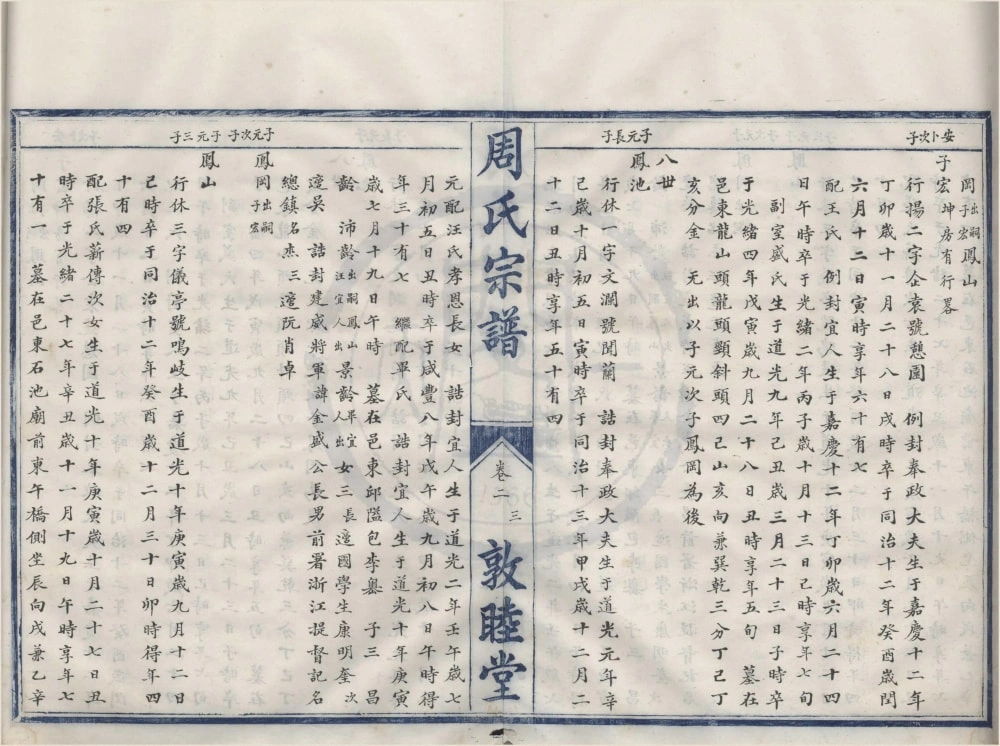 安卜次子
岡出嗣子宏鳳山
子宏坤房有行畧
行揚二字企袁號憩園 例封奉政大夫生于嘉慶十二年
丁卯歲十一月二十八日戌時卒于同治十二年癸酉歲閏
六月十二日寅時享年六十有七
配王氏 例封宜人生于嘉慶十二年丁卯歲六月二十四
日午時卒于光緒二年丙子歲十月十三日己時享年七旬
副室盛氏生于道光九年己丑歲三月二十三日子時卒
于光緒四年戊寅歲九月二十八日丑時享年五旬 墓在
邑東龍山頭龍頭頸斜頭四己山亥向兼巽乾三分丁己丁
亥分金 无出以子元次子鳳岡為後
八世
子元長子
鳳池
行休一字文瀾號聞蘭 誥封奉政大夫生于道光元年辛
己歲十月初五日寅時卒于同治十三年甲戌歲十二月二
十二日丑時享年五十有四
周氏宗譜
卷二 三
敦睦堂
元配汪氏孝恩長女 誥封宜人生于道光二年壬午歲七
月初五日丑時卒于咸豐八年戊午歲九月初八日午時得
年三十有七 繼配畢氏 誥封宜人生于道光十年庚寅
歲七月十九日午時 墓在邑東邱隘包李墺 子三 昌
齡 沛齡出嗣鳳山汪宜人出 景齡畢宜人出 女三長適國學生康明奎次
適吳 誥封建威將軍諱金盛公長男前署浙江提督記名
總鎮名杰三適阮肖卓
子元次子
鳳岡出嗣子宏
子元三子
鳳山
行休三字儀亭號鳴岐生于道光十年庚寅歲九月十二日
己時卒于同治十二年癸酉歲十二月三十日卯時得年四
十有四
配張氏薪傳次女生于道光十年庚寅歲十月二十七日丑
時卒于光緒二十七年辛丑歲十一月十九日午時享年七
十有一 墓在邑東石池廟前東午橋側坐辰向戌兼乙辛